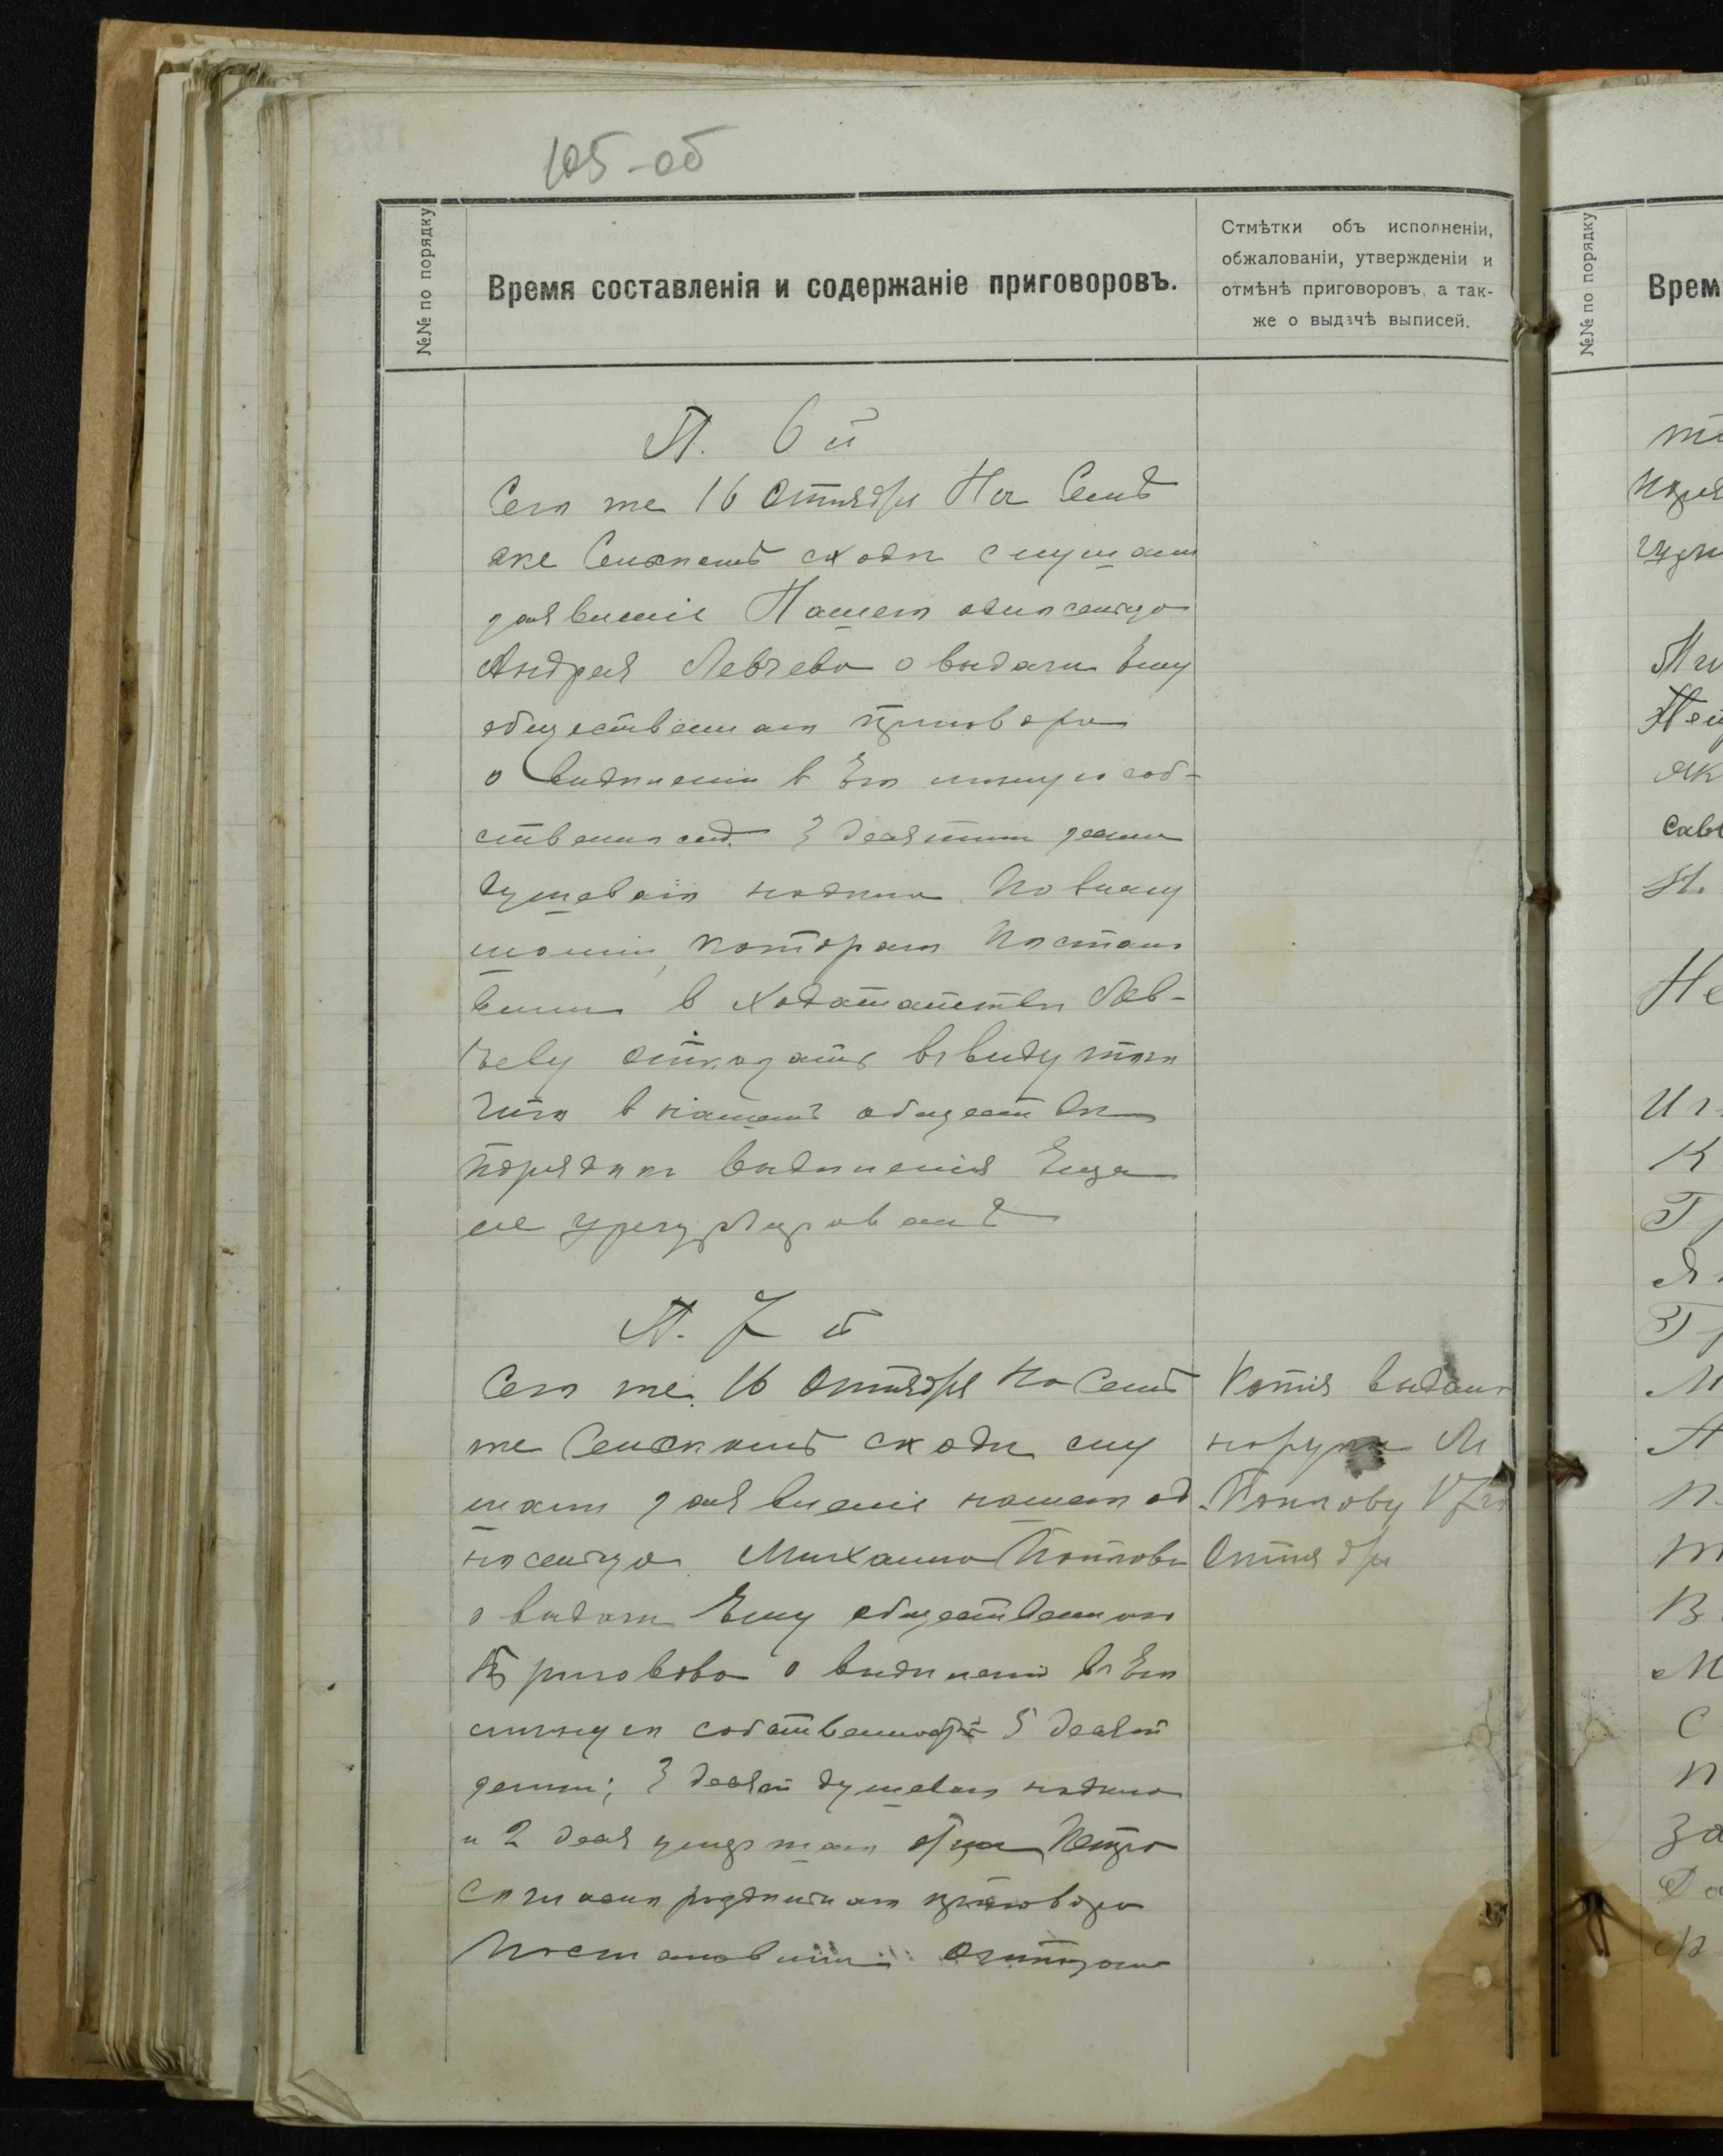 105-об
№№ по порядку
Время составленія и содержаніе приговоровъ.
Отмѣтки объ исполненіи,
обжалованіи, утвержденіи и
отмѣнѣ приговоровъ, а так-
же о выдачѣ выписей.
П. 6й
Сего же 16 Октября На Семъ
же Сельскомъ сходе слушали
заявленіе Нашего односельца
Андрея Левчева о выдачи Ему
общественнаго приговора
о выделеніи в Его личную соб-
ственность 3 десятины земли
душеваго надела. По выслу
шаніи, котораго Постано
вили в Ходатайстве Лев-
чеву отказать ввиду того
что в нашемъ обществе
порядокъ выделенія Еще
не урегулированъ
П. 7й
Сего же 16 Октября На Семъ
же Сельскомъ сходе слу
шали заявленіе нашего од
носельца Михаила Попкова
о выдачи Ему общественнаго
Приговора о выделеніи в Его
личную собственность 5 десят
земли; 3 десят душеваго надела
и 2 деся отца Петра
Согласно приговора
Постановили:
Копія выдана
на руки М
Попкову 17го
Октября
№№ по порядку
Врем